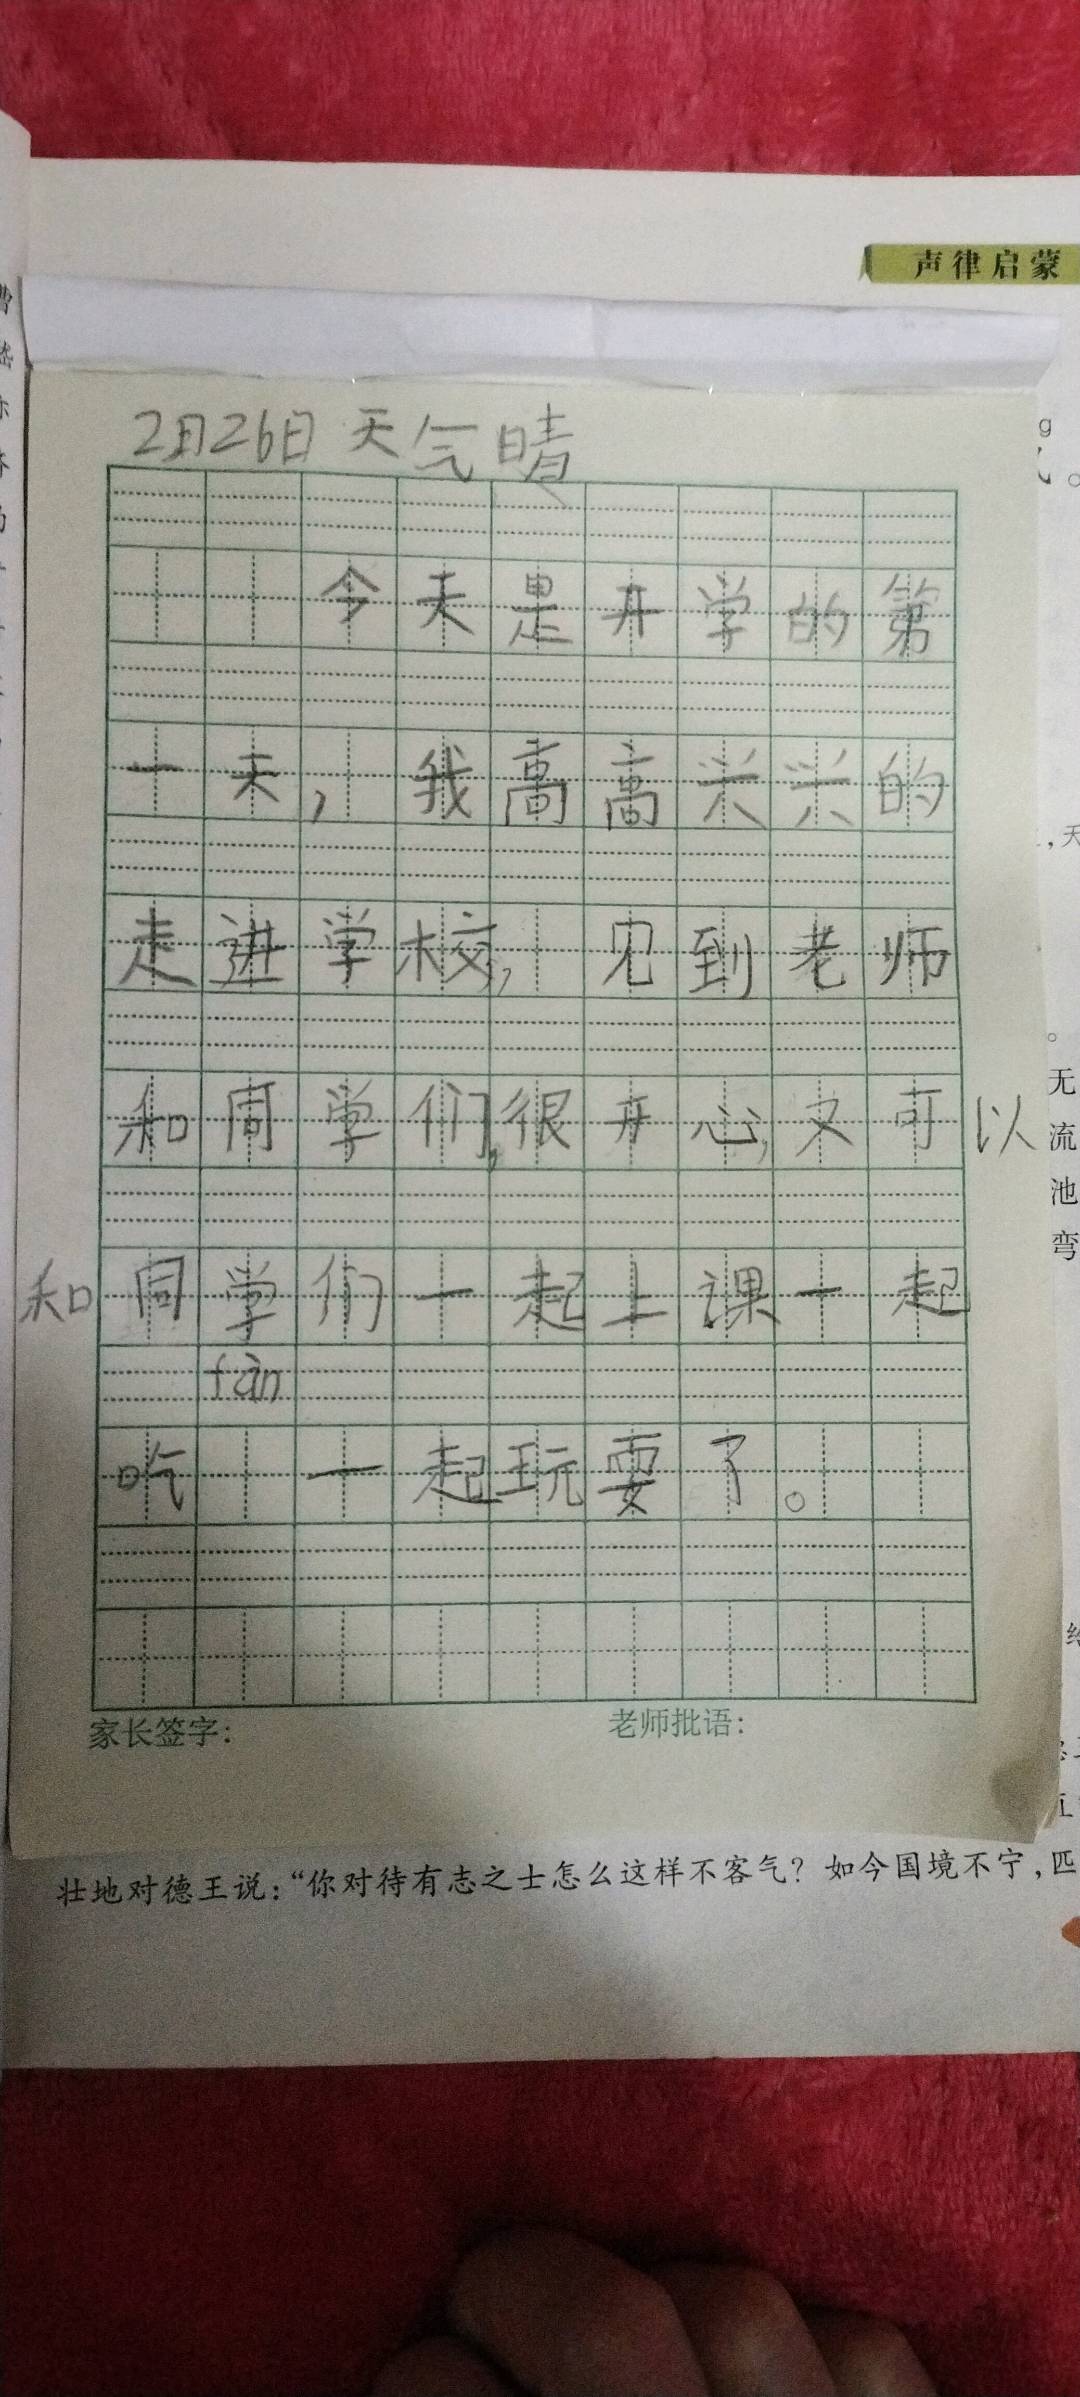 声律启蒙
2月26日 天气晴
今天是开学的第
一天，我高高兴兴的
走进学校，见到老师
和同学们，很开心，又可以
和同学们一起上课一起
fàn
吃 一起玩耍了。
家长签字：
老师批语：
g
，天
无
流
池
弯
壮地对德王说：“你对待有志之士怎么这样不客气？如今国境不宁，匹